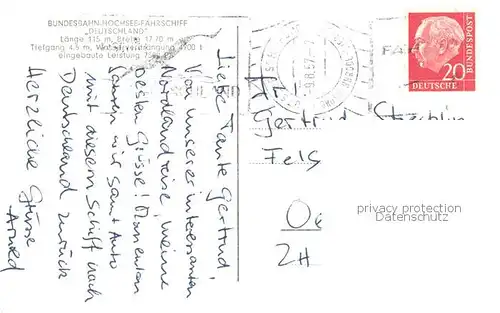 BUNDESBAHN-HOCHSEE-FÄHRSCHIFF
„DEUTSCHLAND"
Länge 115 m, Breite 17,70 m
Tiefgang 4,9 m, Wasserverdrängung t
eingebaute Leistung
Liebe Tante Gertrud,
Von unserer interessanten
Nordlandreise, meine
besten Grüsse! Momentan
fahren wir samt Auto
mit diesem Schiff nach
Deutschland zurück
Herzliche Grüsse
Arnold
-9.8.57-
20
DEUTSCHE
BUNDESPOST
Frl.
Gertrud
Fels
Oe
ZH
privacy protection
Datenschutz